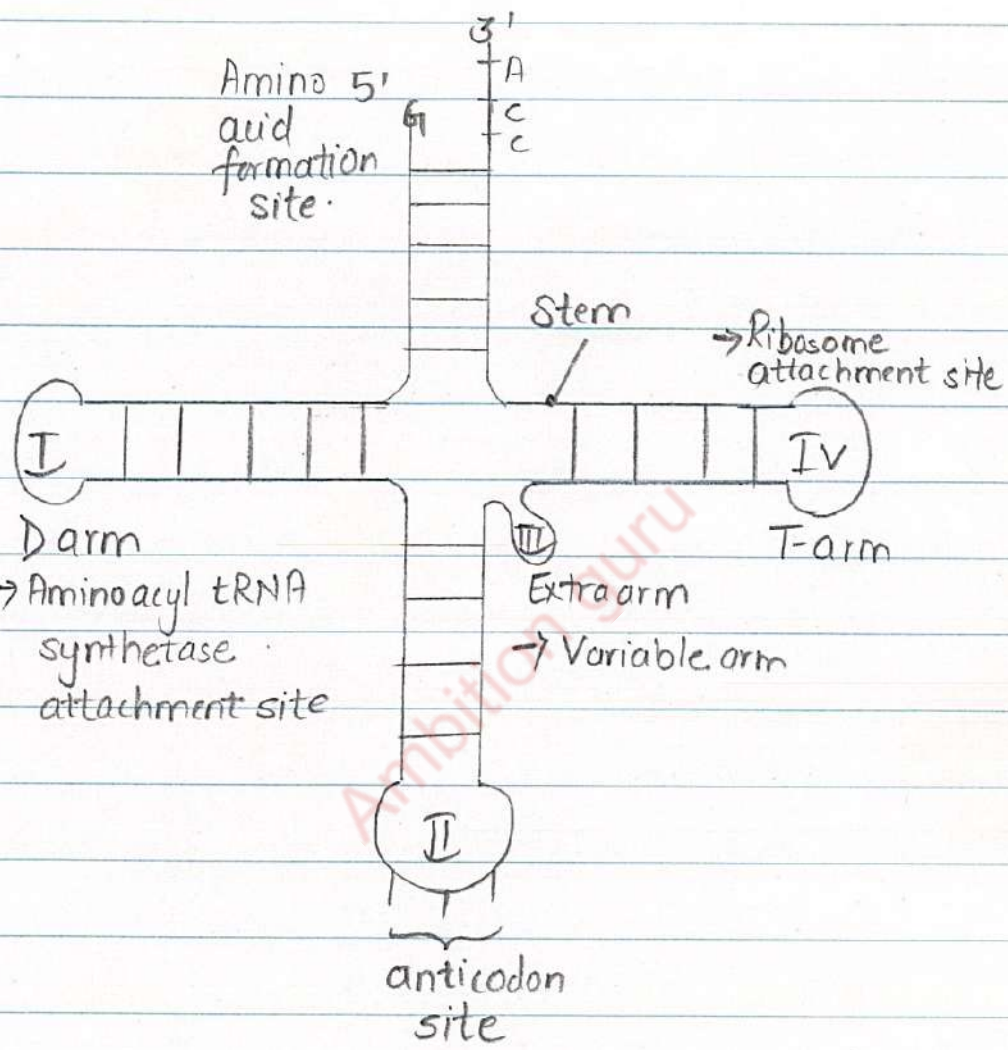 3'
A
C
C
Amino 5'
acid
formation
site.
G
Stem
→ Ribosome
attachment site
I
IV
D arm
→ Aminoacyl tRNA
synthetase
attachment site
III
T-arm
Extra arm
→ Variable arm
II
anticodon
site
Ambition guru